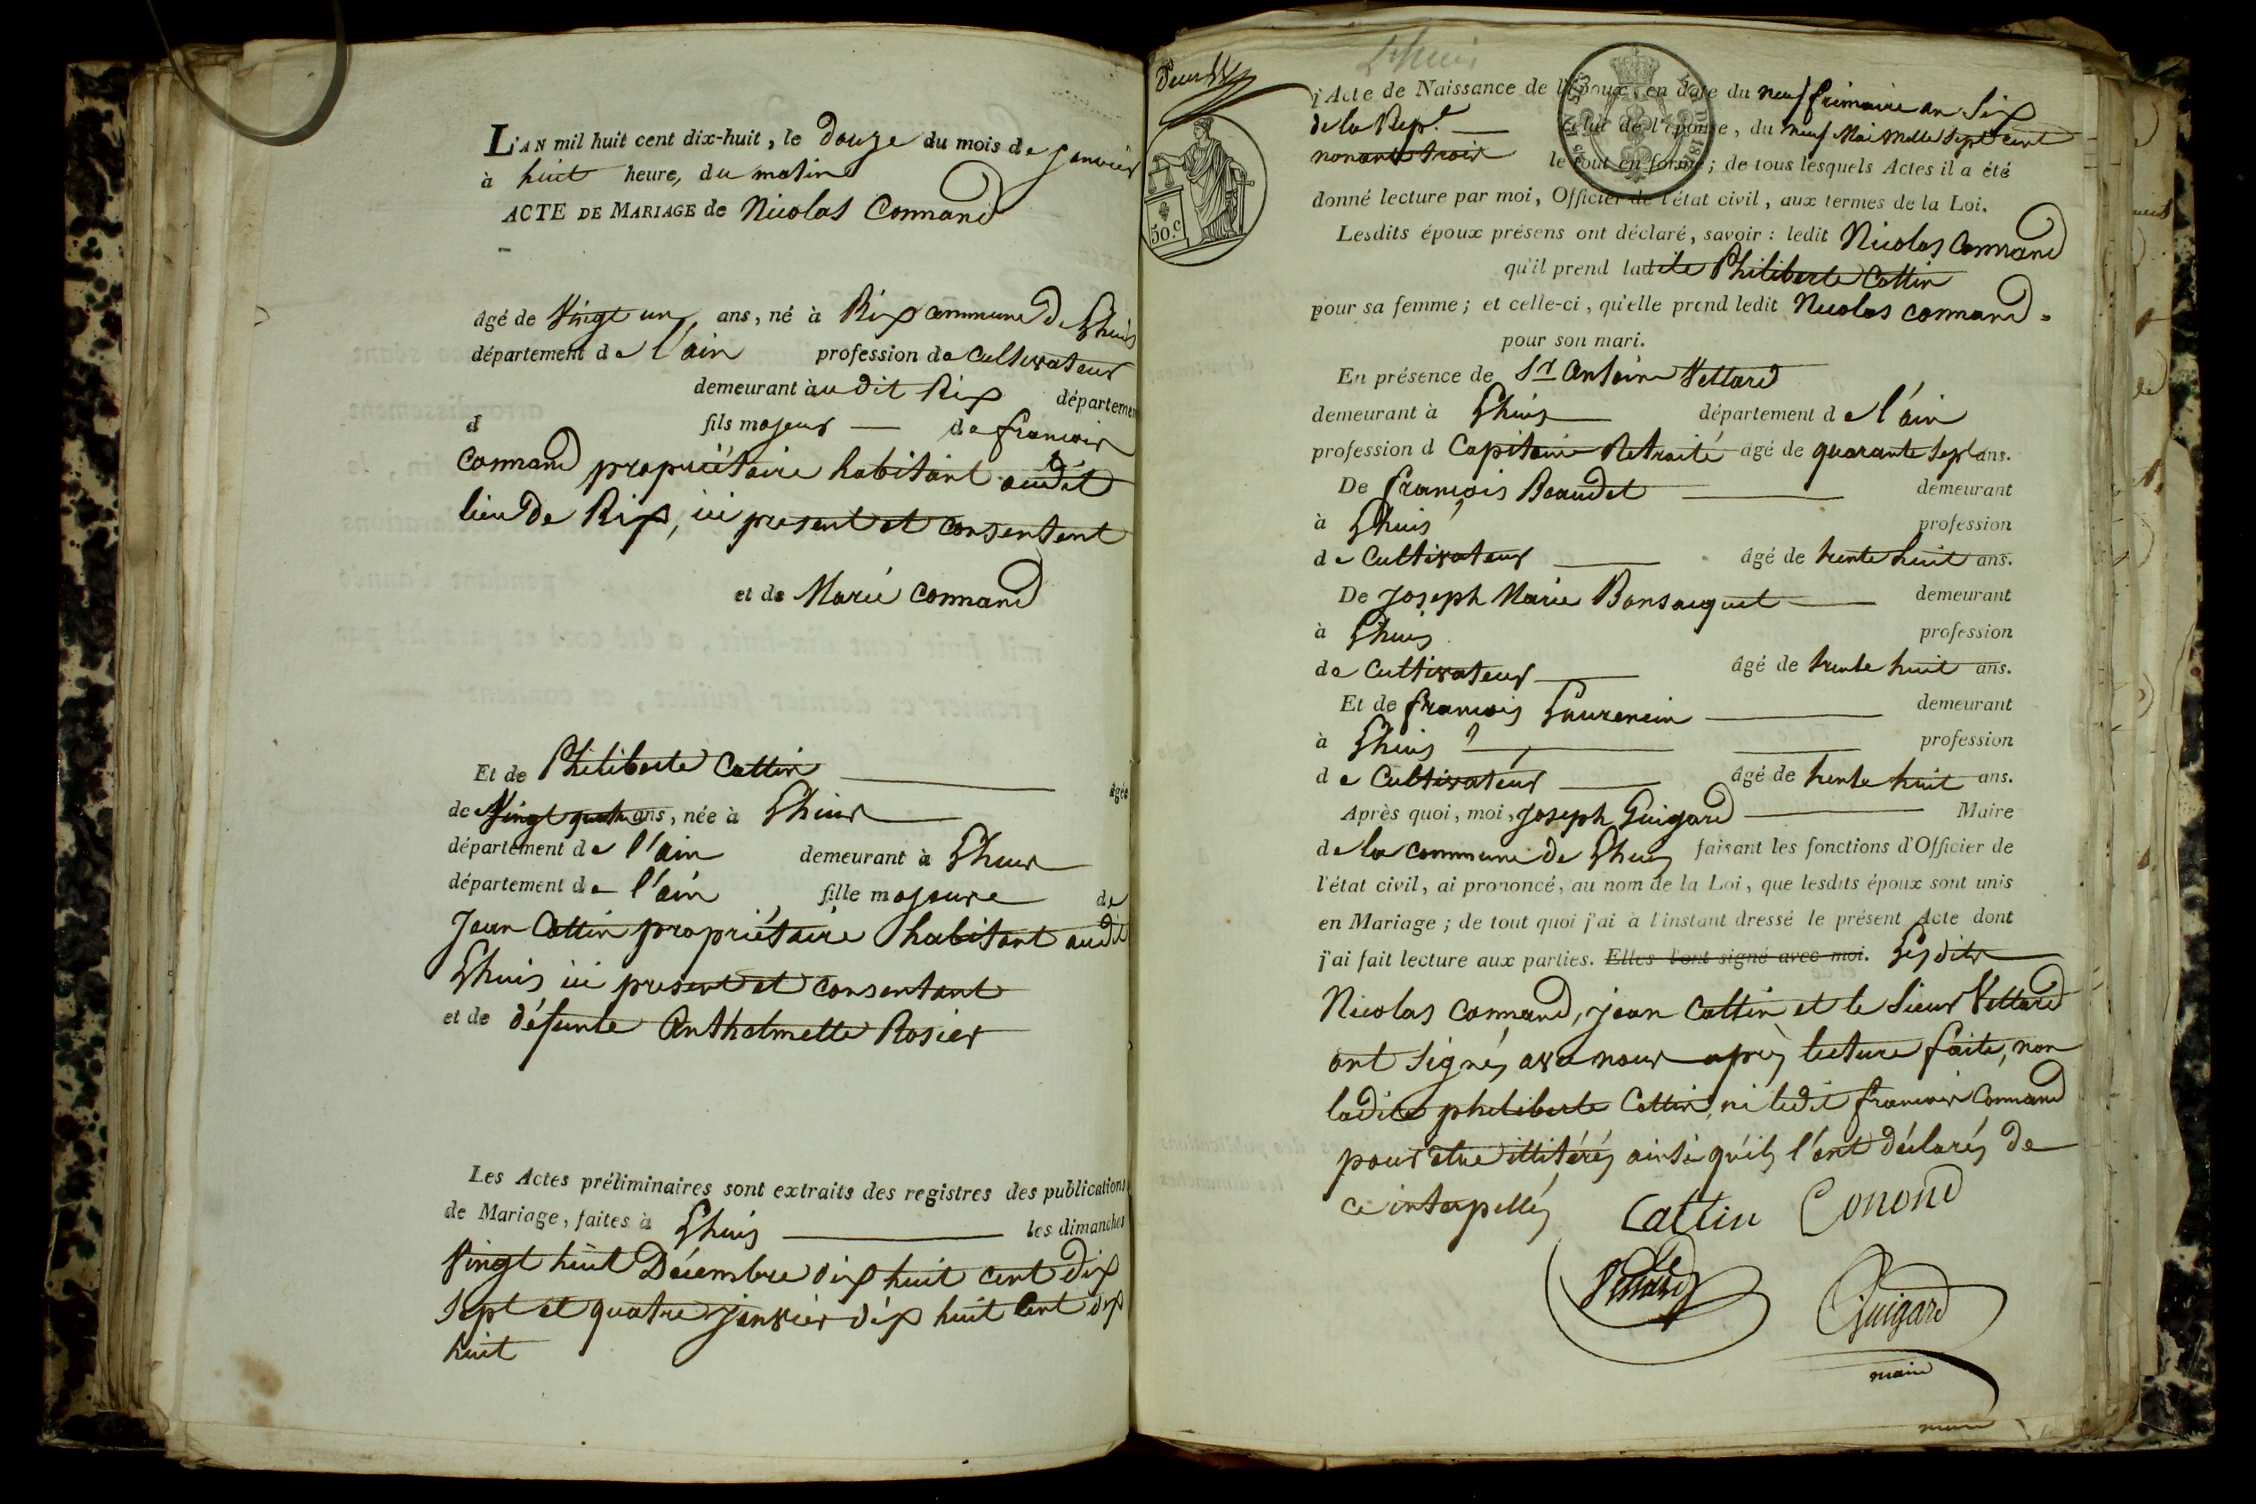 L'AN mil huit cent dix-huit, le Douze du mois de janvier
à huit heure, du matin
ACTE DE MARIAGE de Nicolas Connand
âgé de Vingt un ans, né à Rix commune de Lhuis
département de l'ain profession de Cultivateur
demeurant à audit Rix département
d fils majeur de francois
Connand propriétaire habitant audit
lieu de Rix, ici present et consentent
et de Marie Connand
Et de Philiberte Cottin âgée
de Vingt quatre ans, née à Lhuis
département de l'ain demeurant à Lhuis
département de l'ain fille majeure de
Jean Cottin propriétaire habitant audit
Lhuis ici present et consentant
et de défunte Anthelmette Rosier
Les Actes préliminaires sont extraits des registres des publications
de Mariage, faites à Lhuis les dimanches
Vingt huit Décembre dix huit cent dix
sept et quatre janvier dix huit cent dix
huit
Lhuis
50.c
l'Acte de Naissance de l'époux, en date du neuf frimaire an Six
de la Rep.e celui de l'épouse, du neuf Mai Mille Sept cent
nonante trois le tout en forme; de tous lesquels Actes il a été
donné lecture par moi, Officier de l'état civil, aux termes de la Loi.
Lesdits époux présens ont déclaré, savoir: ledit Nicolas Connand
qu'il prend ladite Philiberte Cottin
pour sa femme; et celle-ci, qu'elle prend ledit Nicolas Connand
pour son mari.
En présence de Sr Antoine Vettard
demeurant à Lhuis département de l'ain
profession d Capitaine Retraité âgé de quarante sept ans.
De françois Beaudet demeurant
à Lhuis profession
de Cultivateur âgé de trente huit ans.
De Joseph Marie Bonsacquet demeurant
à Lhuis profession
de Cultivateur âgé de trente huit ans.
Et de françois Laurencin demeurant
à Lhuis profession
de Cultivateur âgé de trente huit ans.
Après quoi, moi, Joseph Guigard Maire
de la commune de Lhuis faisant les fonctions d'Officier de
l'état civil, ai prononcé, au nom de la Loi, que lesdits époux sont unis
en Mariage; de tout quoi j'ai à l'instant dressé le présent Acte dont
j'ai fait lecture aux parties. Elles l'ont signé avec moi. Lesdits
Nicolas Connand, jean Cottin et le Sieur Vettard
ont signés avec nous après lecture faite, non
ladite philiberte Cottin, ni ledit francois Connand
pour etre illitérés ainsi qu'ils l'ont déclarés de
ce interpellés
Cattin Conond
Vettard Guigard
maire